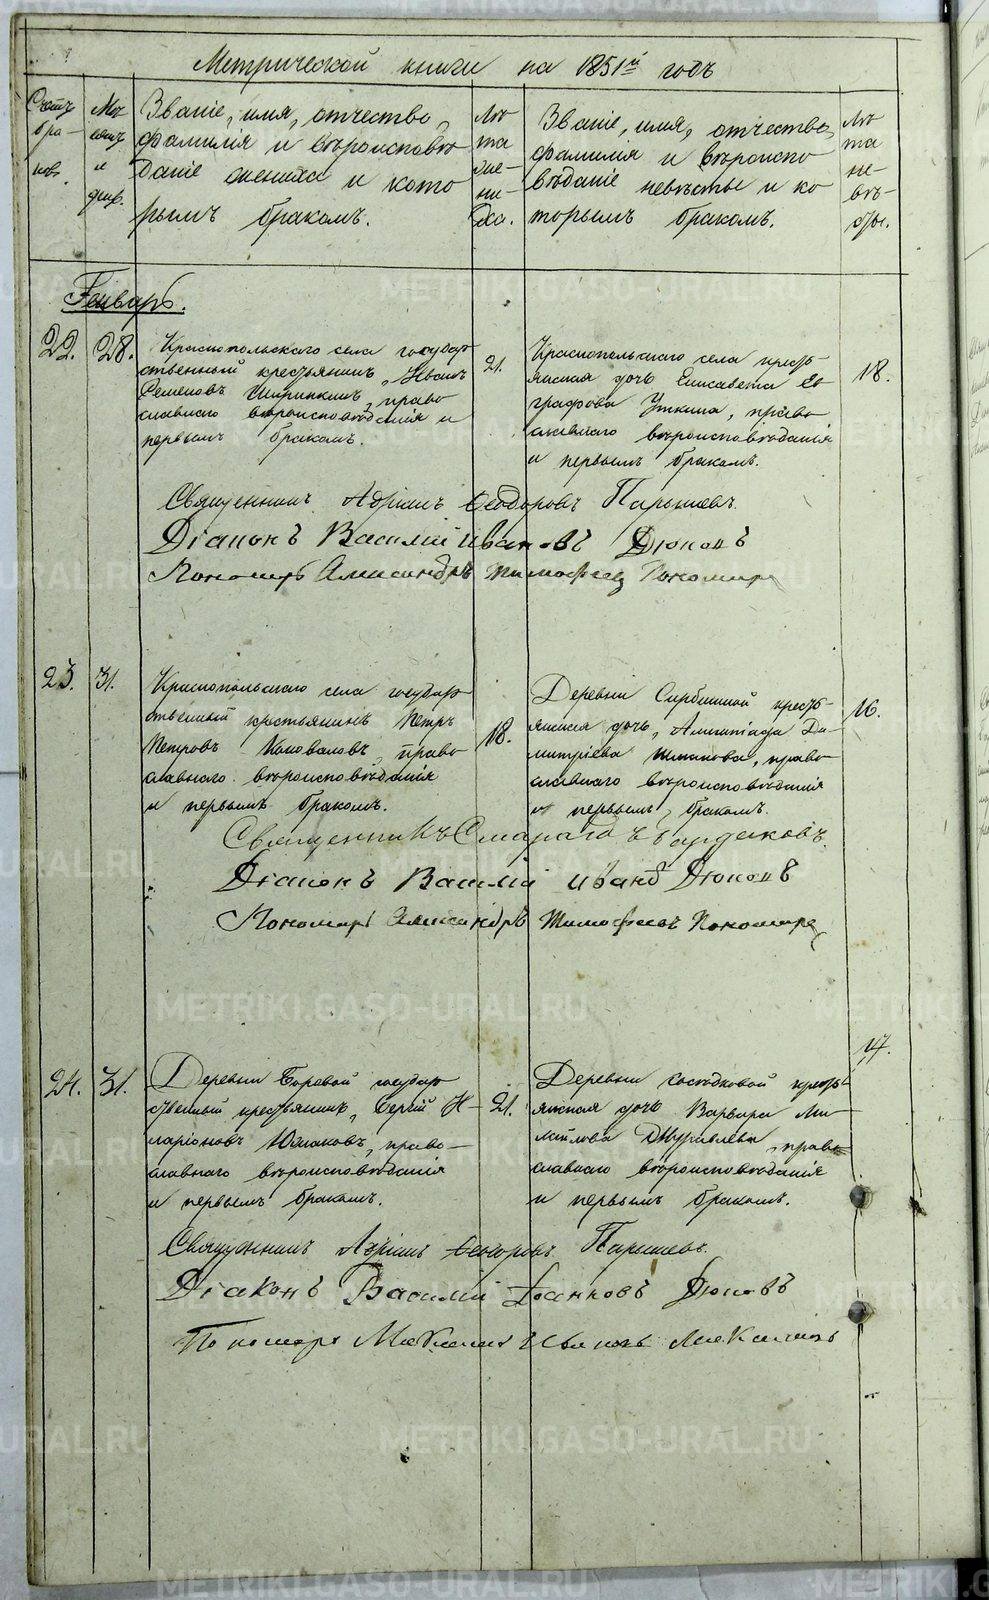 Метрической книги на 1851й годъ
Счетъ бра- ковъ.
Мѣ- сяцъ и
Званіе, имя, отчество,
фамилія и вѣроисповѣ
даніе жениха и кото
рымъ бракомъ.
Лѣ та же- ни- ха.
Званіе, имя, отчество,
фамилія и вѣроиспо
вѣданіе невѣсты и ко
торымъ бракомъ.
Лѣ та не- вѣ- сты.
Генварь.
22. 28.
Краснопольскаго села государ
ственный крестьянинъ, Иванъ
Семеновъ Ширинкинъ, право
славнаго вѣроисповѣданія и
первымъ бракомъ.
21.
Краснопольскаго села кресть-
янская дочь Елисавета Ев
графова Уткина, право
славнаго вѣроисповѣданія
и первымъ бракомъ.
18.
Священникъ Адріанъ Ѳеодоровъ Парышевъ.
Діаконъ Василій Ивановъ Дюковъ
Пономарь Александръ Тимофеев Пономарев
23. 31.
Краснопольскаго села государ
ственный крестьянинъ Петръ
Петровъ Коноваловъ, право
славнаго вѣроисповѣданія
и первымъ бракомъ.
18.
Деревни Сербишной кресть-
янская дочь, Ди-
митріева право
славнаго вѣроисповѣданія
и первымъ бракомъ.
16.
Священникъ Смарагдъ Бурдаковъ.
Діаконъ Василій Иванъ Дюковъ
Пономарь Александръ Тимофеевъ Пономарев
24. 31.
Деревни Боровой государ
ственный крестьянинъ, Сергій И-
ларіоновъ Южаковъ, право-
славнаго вѣроисповѣданія
и первымъ бракомъ.
21.
Деревни кресть-
янская дочь Варвара Ми-
хайлова Журавлева, право
славнаго вѣроисповѣданія
и первымъ бракомъ.
17.
Священникъ Адріанъ Ѳеодоровъ Парышевъ.
Діаконъ Василій Іоанновъ Дюковъ
Пономарь
METRIKI.GASO-URAL.RU